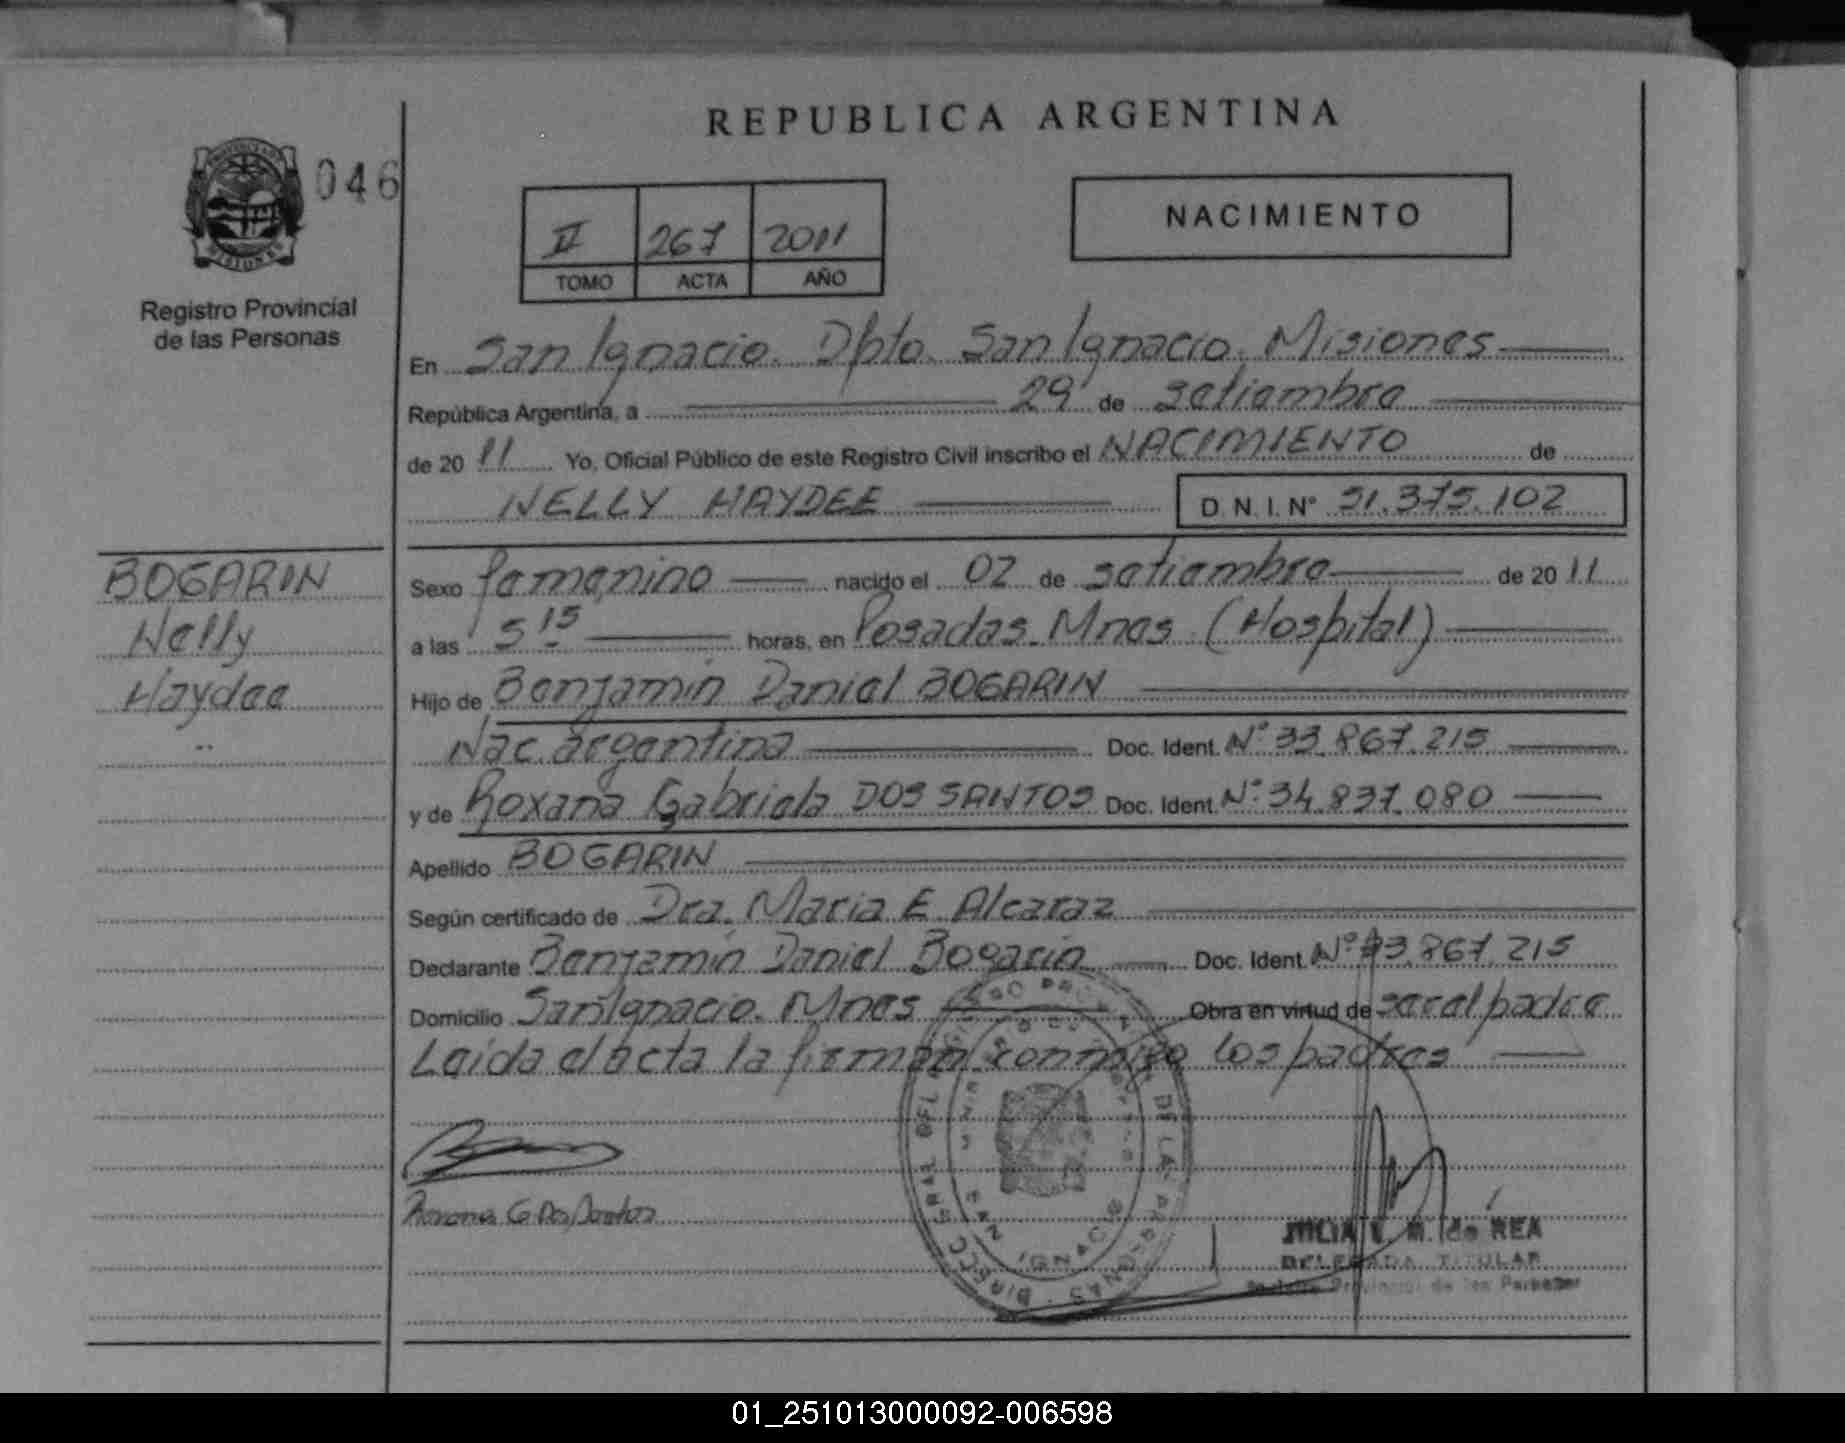 REPUBLICA ARGENTINA
046
II 267 2011
TOMO ACTA AÑO
NACIMIENTO
Registro Provincial
de las Personas
En San Ignacio. Dpto. San Ignacio. Misiones
República Argentina, a 29 de setiembre
de 2011 Yo, Oficial Público de este Registro Civil inscribo el NACIMIENTO de
NELLY HAYDEE D.N.I. Nº 51.375.102
BOGARIN
Nelly
Haydee
Sexo femenino nacido el 02 de setiembre de 2011
a las 5 15 horas, en Posadas. Mnes (Hospital)
Hijo de Benjamin Daniel BOGARIN
Nac. argentina Doc. Ident. Nº 33.867.215
y de Roxana Gabriela DOS SANTOS Doc. Ident. Nº 34.837.080
Apellido BOGARIN
Según certificado de Dra. Maria E Alcaraz
Declarante Benjamin Daniel Bogarin Doc. Ident. Nº 33.867.215
Domicilio San Ignacio. Mnes Obra en virtud de ser el padre
Leida el acta la firman conmigo los padres
Roxana G Dos Santos
JULIA V. M. de REA
DELEGADA TITULAR
Provincial de las Personas
SAN IGNACIO
01_251013000092-006598